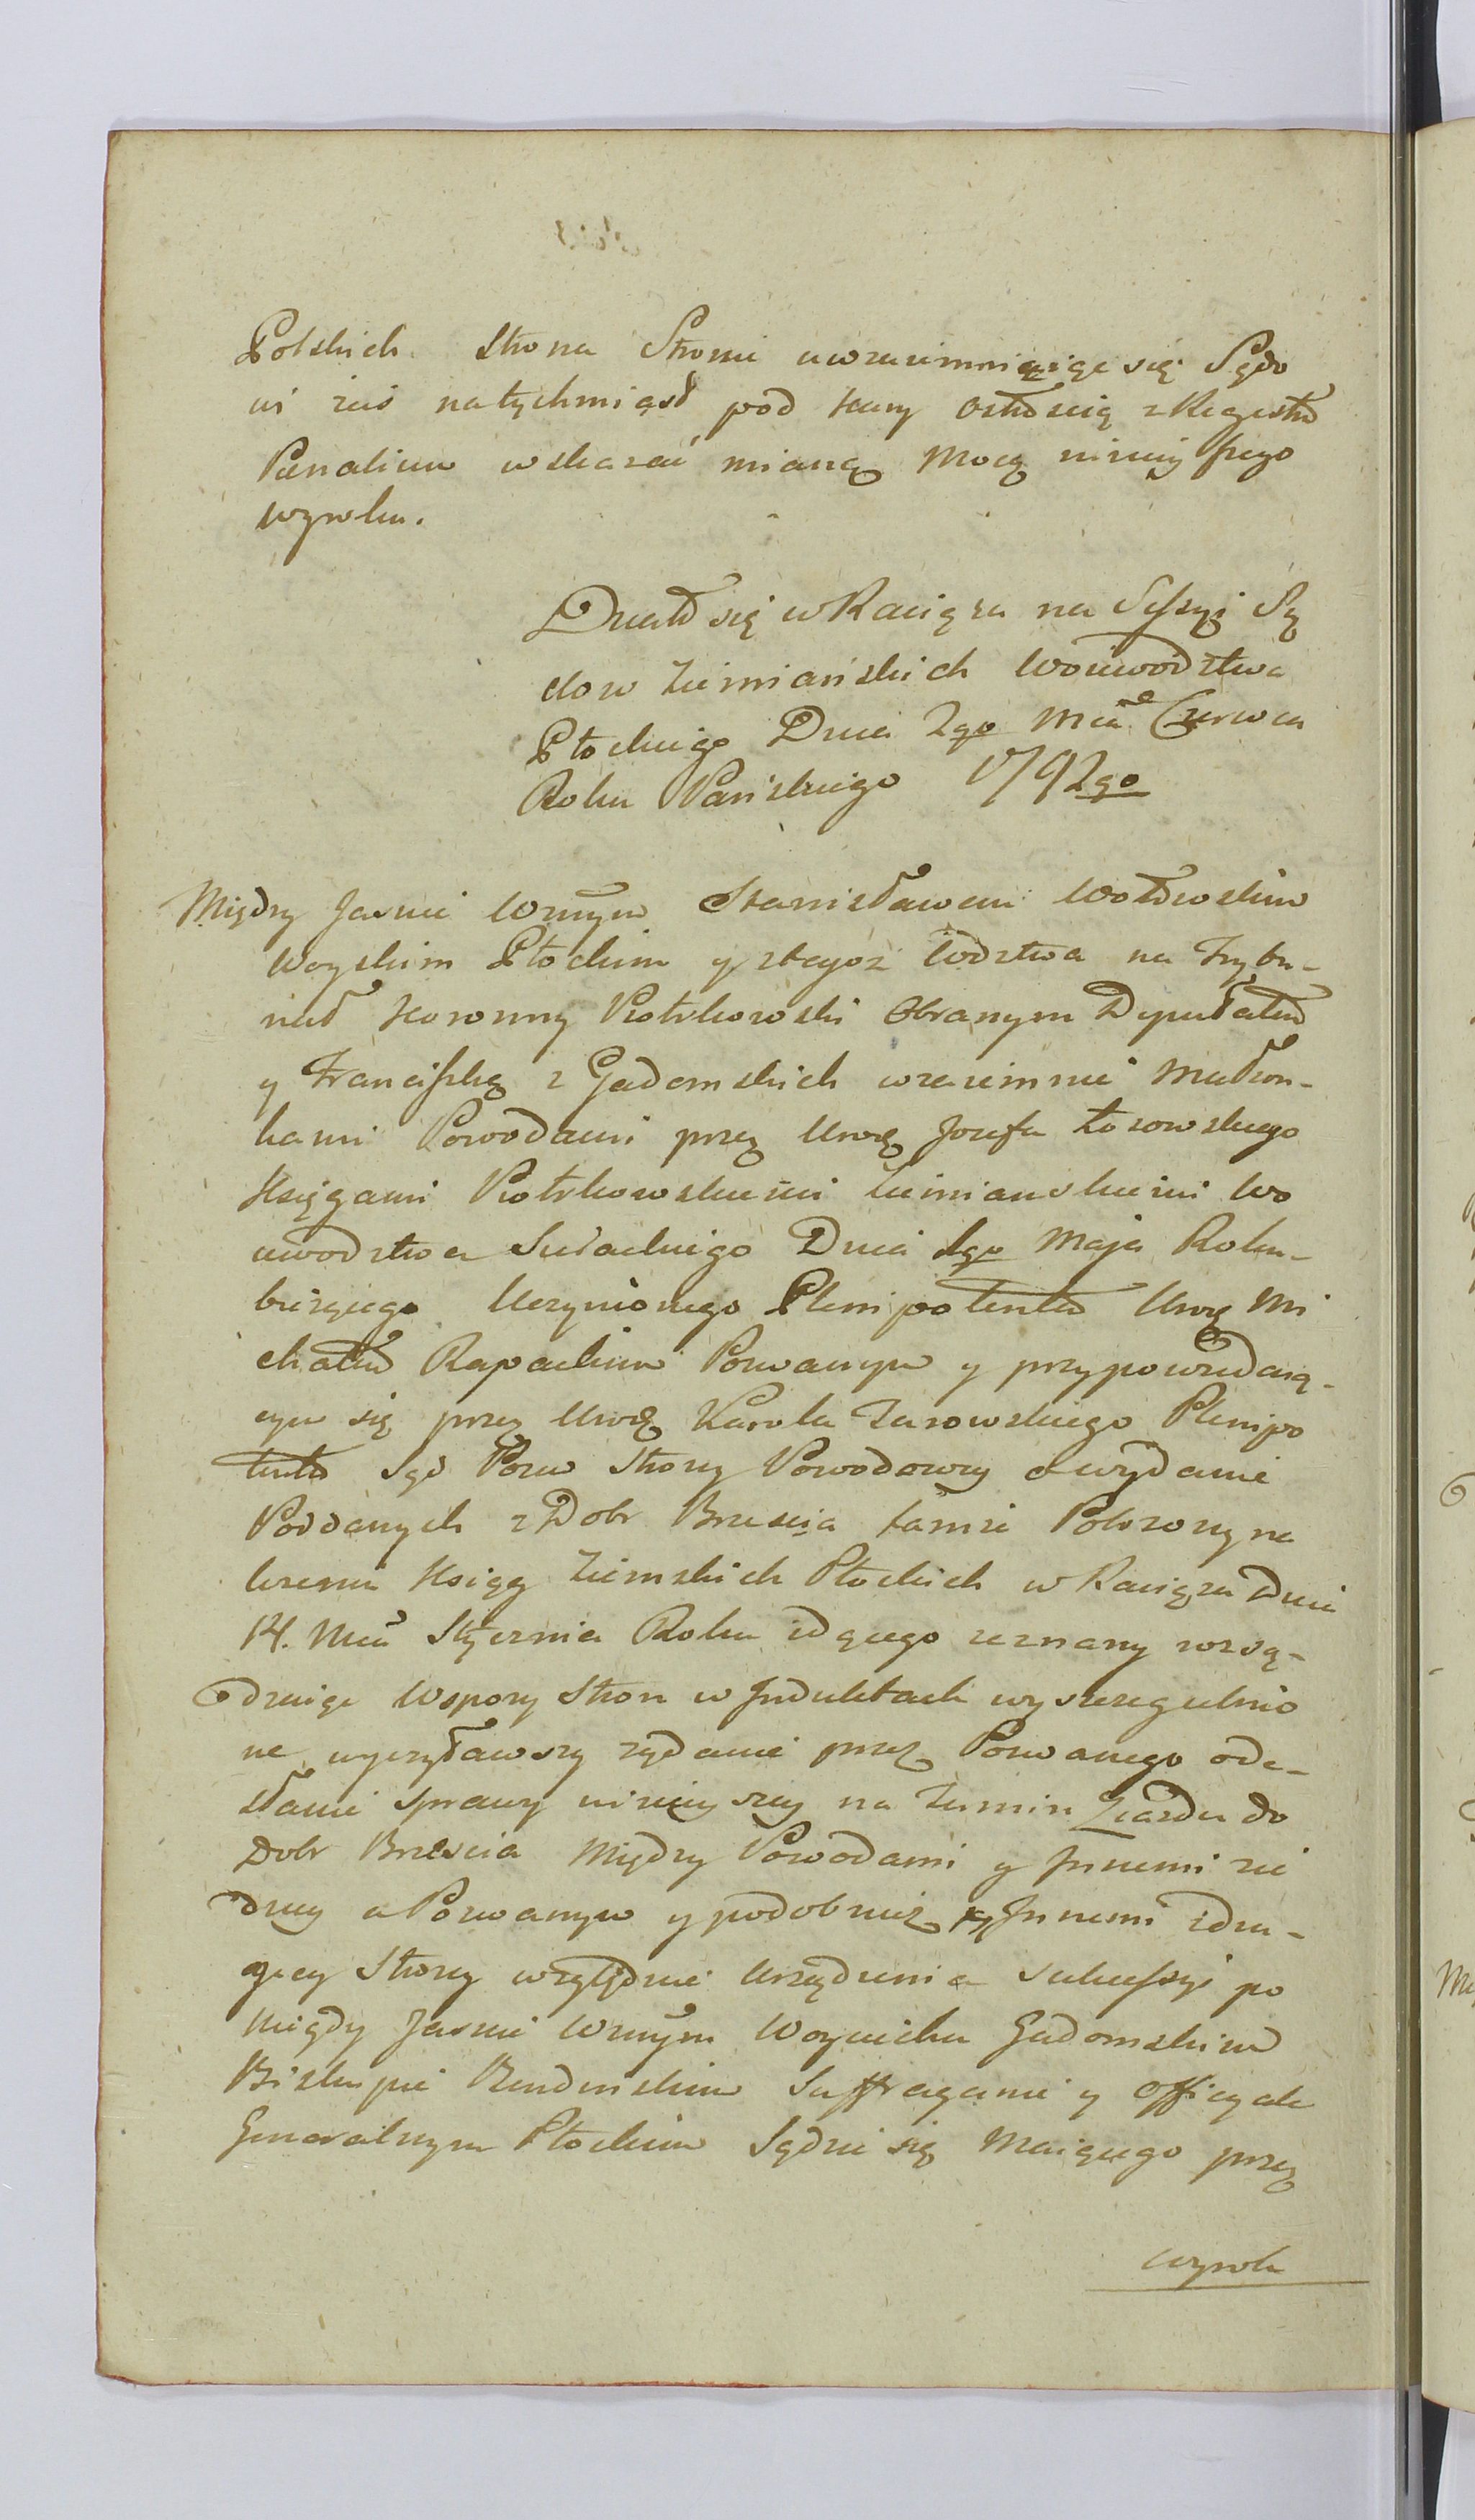 Polskich. Strona Stronie uwzaiemniaiąc się Sędo
wi zaś natychmiast pod karą ostrością z Regestru
Pænalium wskazać mianą Mocą ninieyszego
wyroku.
Działo się w Raciążu na Sessyi Są
dow Ziemiańskich Woiewodztwa
Płockiego Dnia 2go Mca Czerwca
Roku Pańskiego 1792go
Między Jaśnie Wmym Stanisławem Wołowskim
Woyskim Płockim y z tegoż Wdztwa na Trybu-
nał Koronny Piotrkowski Obranym Deputatem
y Franciszką z Gadomskich wzaiemnie Małżon-
kami Powodami przez Urogo Jozefa Łosowskiego
Księgami Piotrkowskiemi Ziemianskiemi Wo
iewodztwa Sieradzkiego Dnia 1go Maja Roku
bieżącego Uczynionego Plenipotenta Urogo Mi
chałem Rapackim Pozwanym y przypowiedaią-
cym się przez Urogo Karola Zarowskiego Plenipo
tenta Sąd Pozew Strony Powodowey o wydanie
Poddanych z Dobr Brzescia tamże Położony na
kszenia Ksiąg Ziemskich Płockich w Raciążu Dnia
14. Mca Stycznia Roku idącego zeznany rozsą-
dzaiąc Wspory Stron w Induktach wyszczegulnio
ne, wyczytawszy rządanie przez Pozwanego ode-
słanie sprawy ninieyszey na Termin Ziazdu do
Dobr Brzescia Między Powodami y Innemi zie
dney a Pozwanym y podobnież y Innemi zdru-
giey Strony względnie Urządzenia Sukcessyi po
między Jaśnie Wmym Woyciechu Gadomskim
Biskupie Bendenskim Suffraganie y Officyale
Generalnym Płockim Sądzić się Maiącego przez
wyrok